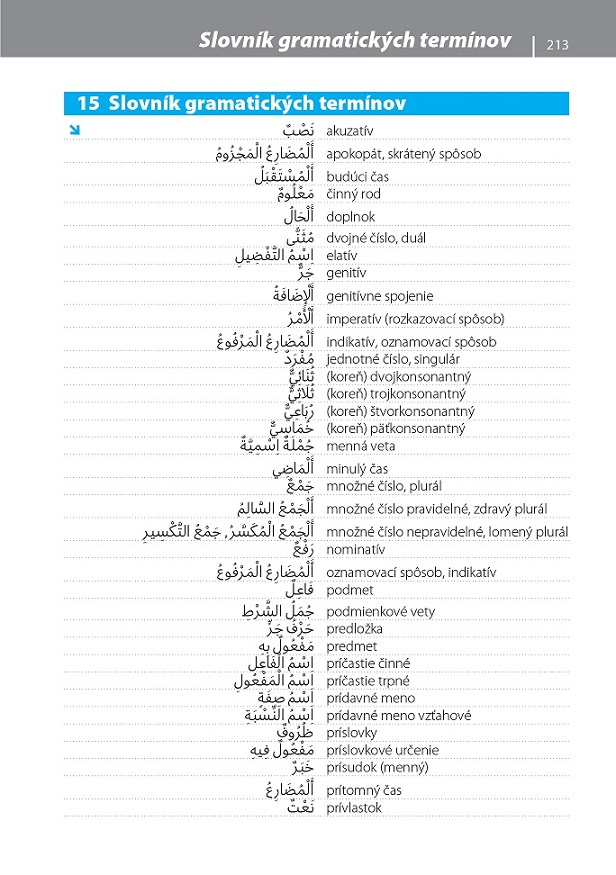 Slovník gramatických termínov 213
15 Slovník gramatických termínov
نَصْبٌ akuzatív
أَلْمُضَارِعُ الْمَجْزُومُ apokopát, skrátený spôsob
أَلْمُسْتَقْبَلُ budúci čas
مَعْلُومٌ činný rod
أَلْحَالُ doplnok
مُثَنَّى dvojné číslo, duál
اِسْمُ التَّفْضِيلِ elatív
جَرٌّ genitív
أَلْإِضَافَةُ genitívne spojenie
أَلْأَمْرُ imperatív (rozkazovací spôsob)
أَلْمُضَارِعُ الْمَرْفُوعُ indikatív, oznamovací spôsob
مُفْرَدٌ jednotné číslo, singulár
ثُنَائِيٌّ (koreň) dvojkonsonantný
ثُلَاثِيٌّ (koreň) trojkonsonantný
رُبَاعِيٌّ (koreň) štvorkonsonantný
خُمَاسِيٌّ (koreň) päťkonsonantný
جُمْلَةٌ اِسْمِيَّةٌ menná veta
أَلْمَاضِي minulý čas
جَمْعٌ množné číslo, plurál
أَلْجَمْعُ السَّالِمُ množné číslo pravidelné, zdravý plurál
أَلْجَمْعُ الْمُكَسَّرُ, جَمْعُ التَّكْسِيرِ množné číslo nepravidelné, lomený plurál
رَفْعٌ nominatív
أَلْمُضَارِعُ الْمَرْفُوعُ oznamovací spôsob, indikatív
فَاعِلٌ podmet
جُمَلُ الشَّرْطِ podmienkové vety
حَرْفُ جَرٍّ predložka
مَفْعُولٌ بِهِ predmet
اِسْمُ الْفَاعِلِ príčastie činné
اِسْمُ الْمَفْعُولِ príčastie trpné
اِسْمُ صِفَةٍ prídavné meno
اِسْمُ النِّسْبَةِ prídavné meno vzťahové
ظُرُوفٌ príslovky
مَفْعُولٌ فِيهِ príslovkové určenie
خَبَرٌ prísudok (menný)
أَلْمُضَارِعُ prítomný čas
نَعْتٌ prívlastok